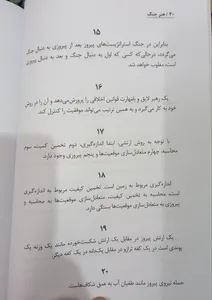 ۴۰ / هنر جنگ
۱۵
بنابراین در جنگ استراتژیست‌های پیروز بعد از پیروزی به دنبال جنگ
می‌گردد، درحالی‌که کسی که اول به دنبال جنگ و بعد به دنبال پیروزی
است، مغلوب خواهد شد.
۱۶
یک رهبر لایق و بامهارت قوانین اخلاقی را پرورش‌می‌دهد و آن را در روش
خود به کار می‌گیرد و به همین ترتیب می‌تواند موفقیت را کنترل کند.
۱۷
با توجه به روش ارتشی، ابتدا اندازه‌گیری، دوم تخمین کمیت سوم
محاسبه، چهارم متعادل‌سازی موقعیت‌ها و پنجم پیروزی وجود دارد.
۱۸
اندازه‌گیری مربوط به زمین است. تخمین کیفیت مربوط به اندازه‌گیری
است. محاسبه به تخمین کیفیت، متعادل‌سازی موقعیت‌ها به محاسبه و
پیروزی به متعادل‌سازی موقعیت‌ها بستگی دارد.
۱۹
یک ارتش پیروز در مقابل یک ارتش شکست‌خورده مانند یک وزنه یک
پوندی است در یک کفه ترازو در مقابل یک‌دانه در یک کفه دیگر.
۲۰
حمله نیروی پیروز مانند طغیان آب به عمق شکاف‌هاست.